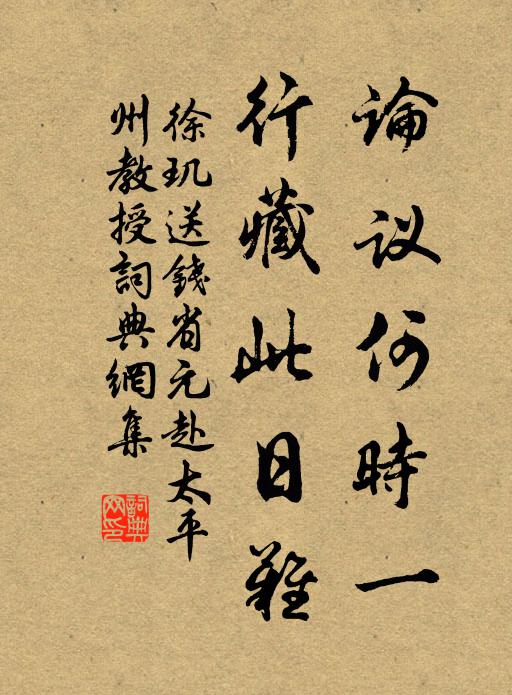 論议何時一
行藏此日難
徐玑送錢省元赴太平
州教授詞典網集
詞典网印